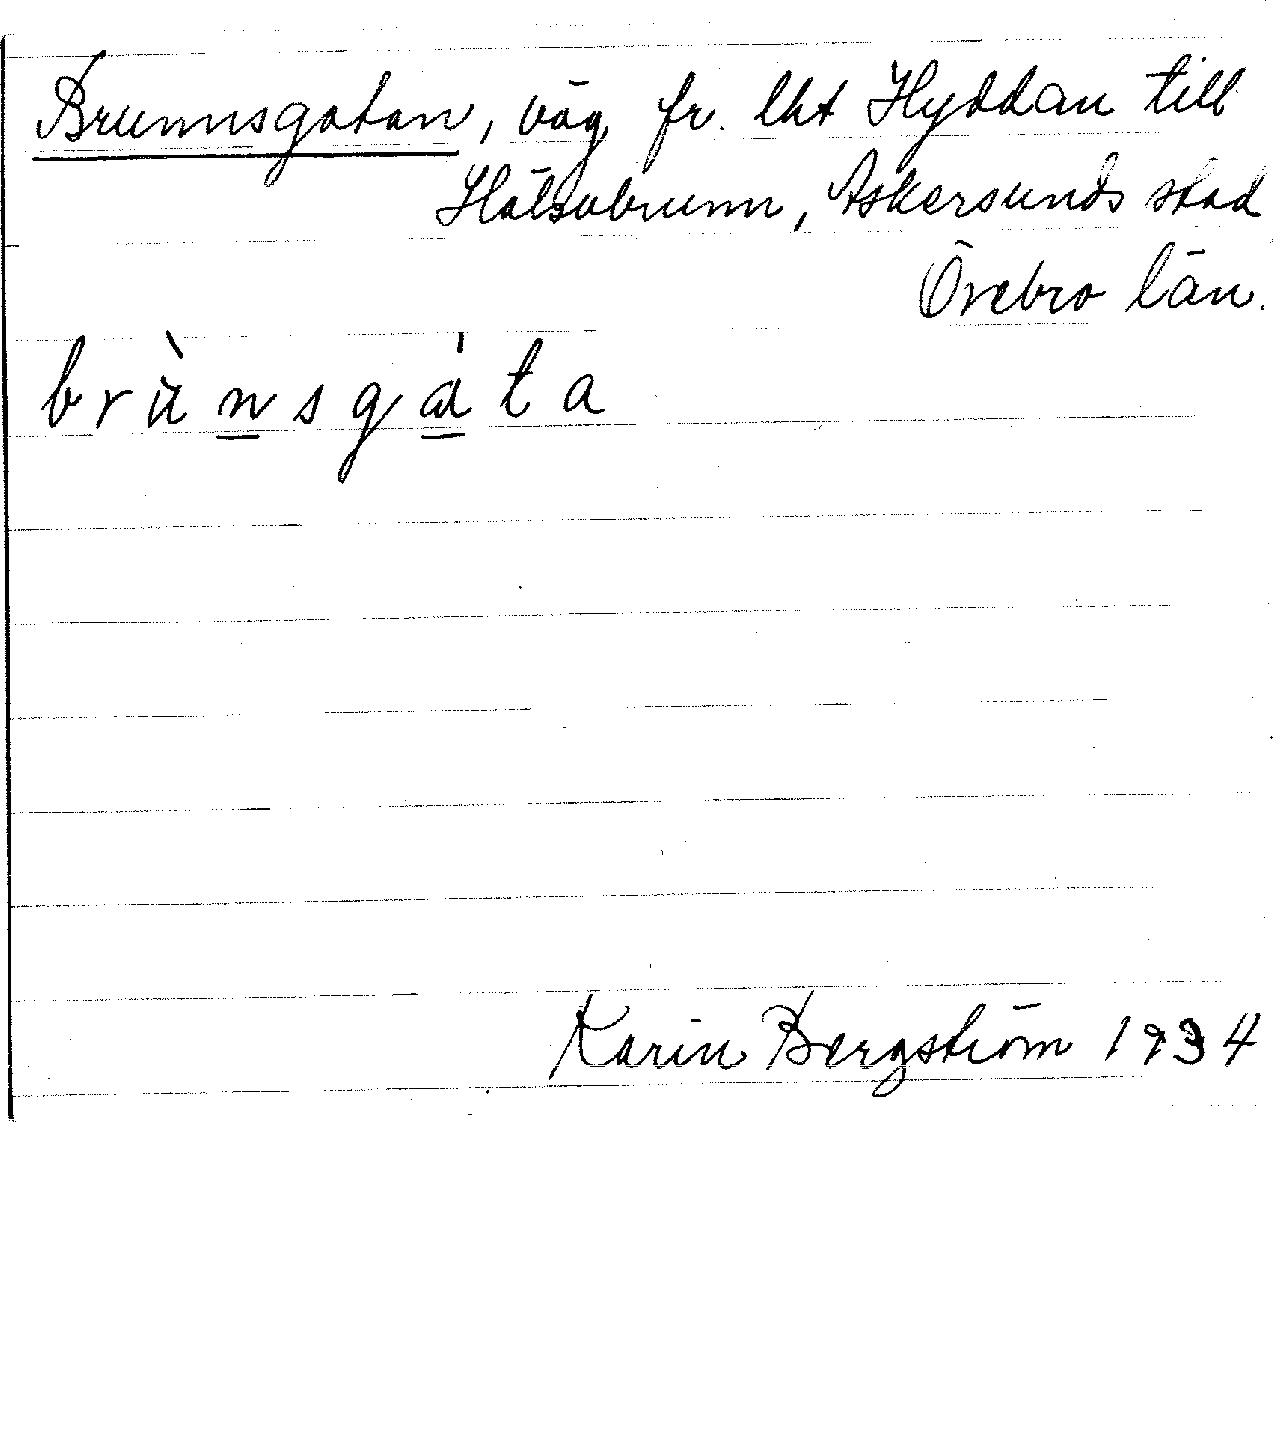 Brunnsgatan, väg fr. lht Hyddan till
Hälsobrunn, Askersunds stad
Örebro län.
brùnsgáta
Karin Bergström 1934